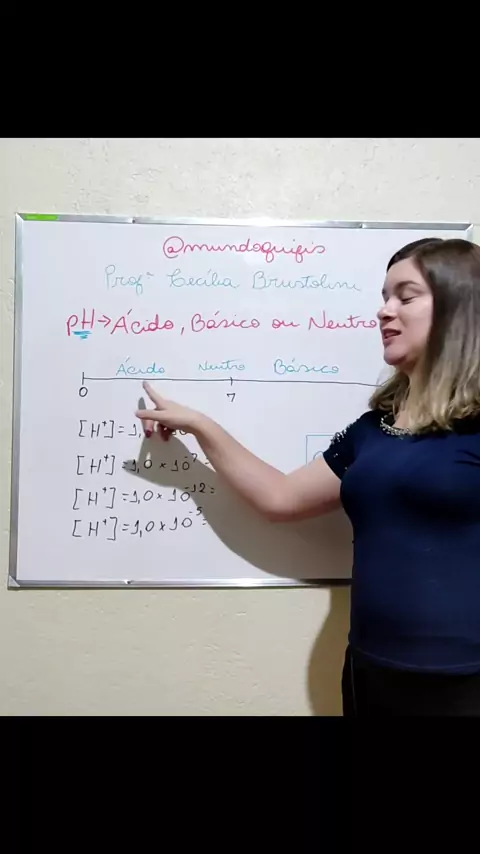 @mundoquifis
Profª Cecília Brustolini
pH→Ácido, Básico ou Neutro
Ácido Neutro Básico
0 7
[H⁺]=1,0
[H⁺]=1,0×10⁻⁷=
[H⁺]=1,0×10⁻¹²=
[H⁺]=1,0×10⁻⁵=